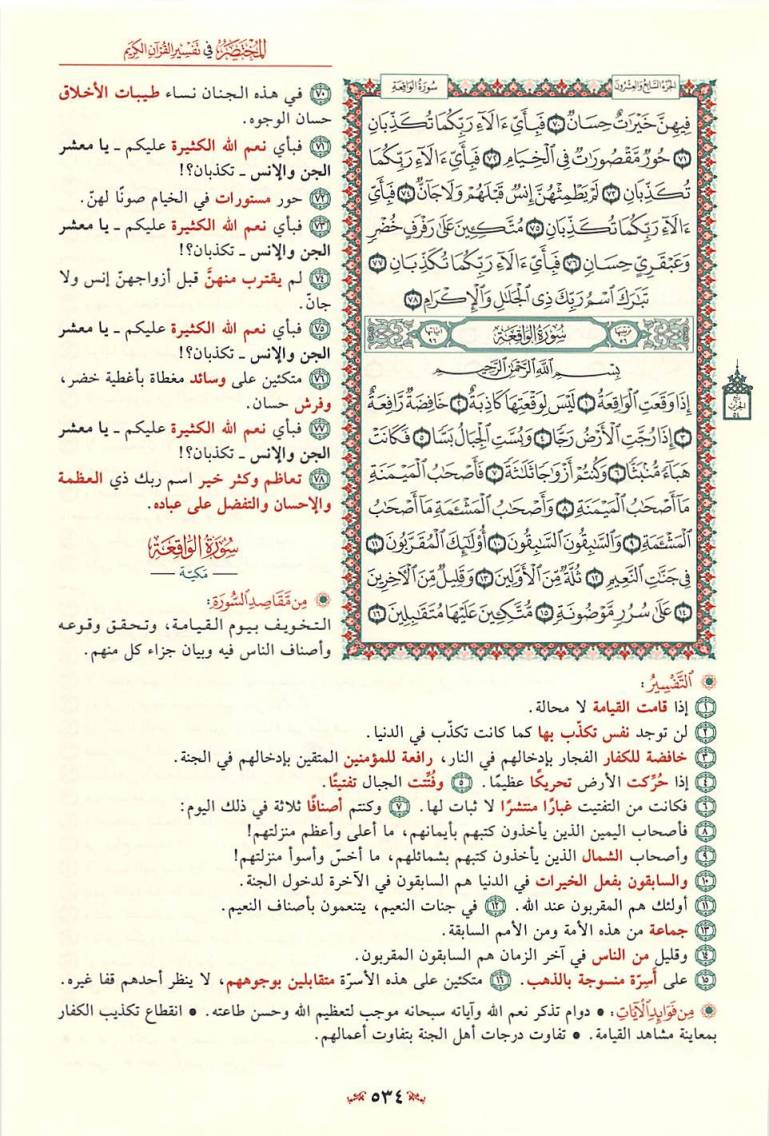 المختصر في تفسير القرآن الكريم
الجزء السابع والعشرون
سورة الواقعة
فِيهِنَّ خَيْرَٰتٌ حِسَانٌ ٧٠ فَبِأَيِّ ءَالَآءِ رَبِّكُمَا تُكَذِّبَانِ
٧١ حُورٌ مَّقْصُورَٰتٌ فِي ٱلْخِيَامِ ٧٢ فَبِأَيِّ ءَالَآءِ رَبِّكُمَا
تُكَذِّبَانِ ٧٣ لَمْ يَطْمِثْهُنَّ إِنسٌ قَبْلَهُمْ وَلَا جَآنٌّ ٧٤ فَبِأَيِّ
ءَالَآءِ رَبِّكُمَا تُكَذِّبَانِ ٧٥ مُتَّكِـِٔينَ عَلَىٰ رَفْرَفٍ خُضْرٍ
وَعَبْقَرِيٍّ حِسَانٍ ٧٦ فَبِأَيِّ ءَالَآءِ رَبِّكُمَا تُكَذِّبَانِ ٧٧
تَبَٰرَكَ ٱسْمُ رَبِّكَ ذِي ٱلْجَلَٰلِ وَٱلْإِكْرَامِ ٧٨
ترتيبها ٥٦ سورة الواقعة آياتها ٩٦
بِسْمِ ٱللَّهِ ٱلرَّحْمَٰنِ ٱلرَّحِيمِ
إِذَا وَقَعَتِ ٱلْوَاقِعَةُ ١ لَيْسَ لِوَقْعَتِهَا كَاذِبَةٌ ٢ خَافِضَةٌ رَّافِعَةٌ
٣ إِذَا رُجَّتِ ٱلْأَرْضُ رَجًّا ٤ وَبُسَّتِ ٱلْجِبَالُ بَسًّا ٥ فَكَانَتْ
هَبَآءً مُّنۢبَثًّا ٦ وَكُنتُمْ أَزْوَٰجًا ثَلَٰثَةً ٧ فَأَصْحَٰبُ ٱلْمَيْمَنَةِ
مَآ أَصْحَٰبُ ٱلْمَيْمَنَةِ ٨ وَأَصْحَٰبُ ٱلْمَشْـَٔمَةِ مَآ أَصْحَٰبُ
ٱلْمَشْـَٔمَةِ ٩ وَٱلسَّٰبِقُونَ ٱلسَّٰبِقُونَ ١٠ أُوْلَٰٓئِكَ ٱلْمُقَرَّبُونَ ١١
فِي جَنَّٰتِ ٱلنَّعِيمِ ١٢ ثُلَّةٌ مِّنَ ٱلْأَوَّلِينَ ١٣ وَقَلِيلٌ مِّنَ ٱلْأٓخِرِينَ
١٤ عَلَىٰ سُرُرٍ مَّوْضُونَةٍ ١٥ مُّتَّكِـِٔينَ عَلَيْهَا مُتَقَٰبِلِينَ ١٦
٧٠ في هذه الجنان نساء طيبات الأخلاق
حسان الوجوه.
٧١ فبأي نعم الله الكثيرة عليكم ـ يا معشر
الجن والإنس ـ تكذبان؟!
٧٢ حور مستورات في الخيام صونًا لهنّ.
٧٣ فبأي نعم الله الكثيرة عليكم ـ يا معشر
الجن والإنس ـ تكذبان؟!
٧٤ لم يقترب منهنَّ قبل أزواجهنّ إنس ولا
جانّ.
٧٥ فبأي نعم الله الكثيرة عليكم ـ يا معشر
الجن والإنس ـ تكذبان؟!
٧٦ متكئين على وسائد مغطاة بأغطية خضر،
وفرش حسان.
٧٧ فبأي نعم الله الكثيرة عليكم ـ يا معشر
الجن والإنس ـ تكذبان؟!
٧٨ تعاظم وكثر خير اسم ربك ذي العظمة
والإحسان والتفضل على عباده.
سورة الواقعة
— مكية —
من مقاصد السورة:
التخويف بيوم القيامة، وتحقق وقوعه
وأصناف الناس فيه وبيان جزاء كل منهم.
التفسير:
١ إذا قامت القيامة لا محالة.
٢ لن توجد نفس تكذّب بها كما كانت تكذّب في الدنيا.
٣ خافضة للكفار الفجار بإدخالهم في النار، رافعة للمؤمنين المتقين بإدخالهم في الجنة.
٤ إذا حُرِّكت الأرض تحريكًا عظيمًا. ٥ وفُتِّتت الجبال تفتيتًا.
٦ فكانت من التفتيت غبارًا منتشرًا لا ثبات لها. ٧ وكنتم أصنافًا ثلاثة في ذلك اليوم:
٨ فأصحاب اليمين الذين يأخذون كتبهم بأيمانهم، ما أعلى وأعظم منزلتهم!
٩ وأصحاب الشمال الذين يأخذون كتبهم بشمائلهم، ما أخسّ وأسوأ منزلتهم!
١٠ والسابقون بفعل الخيرات في الدنيا هم السابقون في الآخرة لدخول الجنة.
١١ أولئك هم المقربون عند الله. ١٢ في جنات النعيم، يتنعمون بأصناف النعيم.
١٣ جماعة من هذه الأمة ومن الأمم السابقة.
١٤ وقليل من الناس في آخر الزمان هم السابقون المقربون.
١٥ على أَسِرّة منسوجة بالذهب. ١٦ متكئين على هذه الأسرّة متقابلين بوجوههم، لا ينظر أحدهم قفا غيره.
من فوائد الآيات: • دوام تذكر نعم الله وآياته سبحانه موجب لتعظيم الله وحسن طاعته. • انقطاع تكذيب الكفار
بمعاينة مشاهد القيامة. • تفاوت درجات أهل الجنة بتفاوت أعمالهم.
٥٣٤